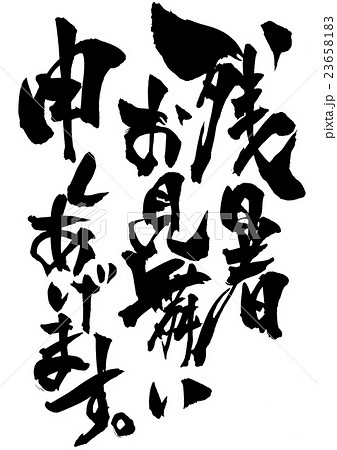 残暑
お見舞い
申しあげます。
pixta.jp - 23658183
PIXTA